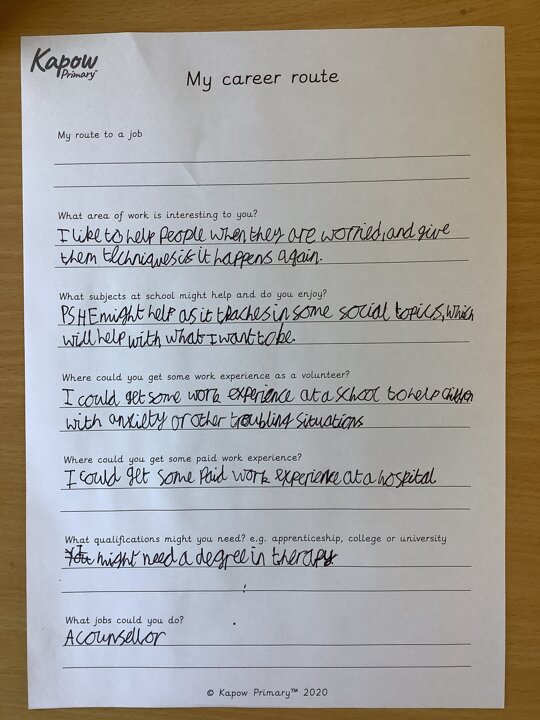 Kapow
Primary™
My career route
My route to a job
What area of work is interesting to you?
I like to help people when they are worried, and give
them techniques if it happens again.
What subjects at school might help and do you enjoy?
PSHE might help as it teaches in some social topics, which
will help with what I want to be.
Where could you get some work experience as a volunteer?
I could get some work experience at a school to help children
with anxiety or other troubling situations
Where could you get some paid work experience?
I could get some paid work experience at a hospital
What qualifications might you need? e.g. apprenticeship, college or university
I might need a degree in therapy
What jobs could you do?
A counsellor
© Kapow Primary™ 2020